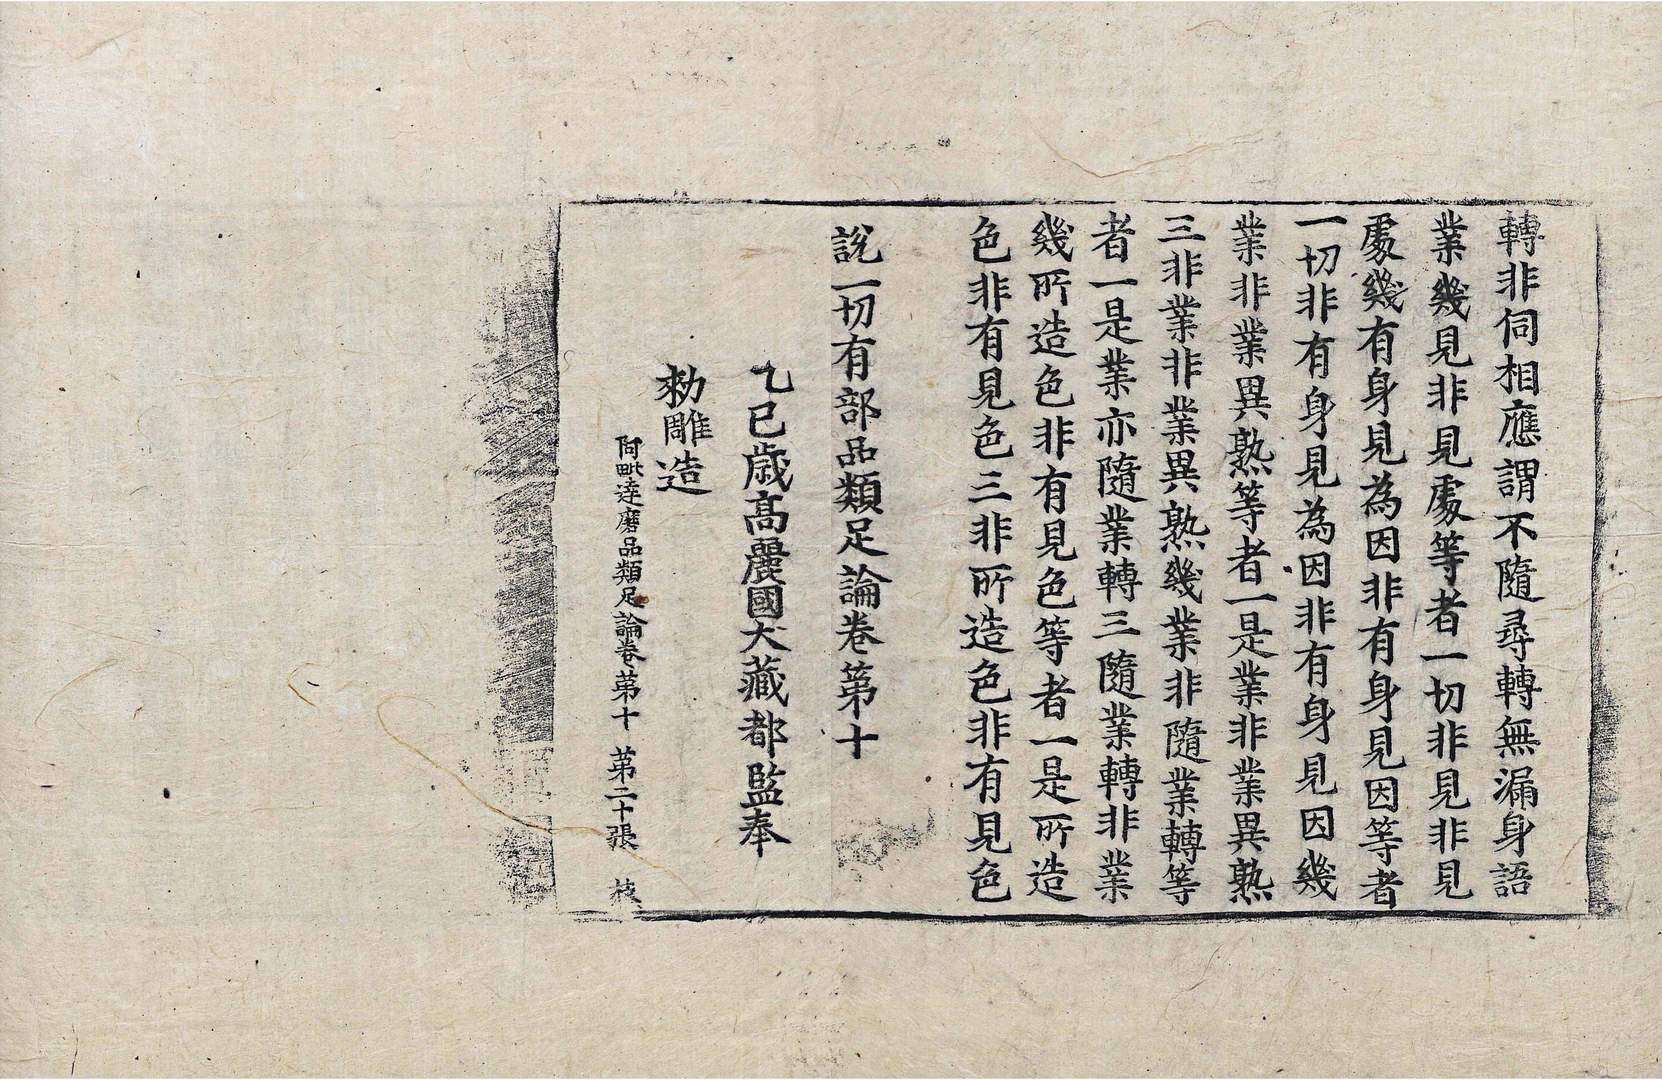 轉非伺相應謂不隨尋轉無漏身語
業幾見非見處等者一切非見非見
處幾有身見為因非有身見因等者
一切非有身見為因非有身見因幾
業非業異熟等者一是業非業異熟
三非業非業異熟幾業非隨業轉等
者一是業亦隨業轉三隨業轉非業
幾所造色非有見色等者一是所造
色非有見色三非所造色非有見色
說一切有部品類足論卷第十
乙巳歲高麗國大藏都監奉
勑雕造
阿毗達磨品類足論卷第十 第二十張 枝